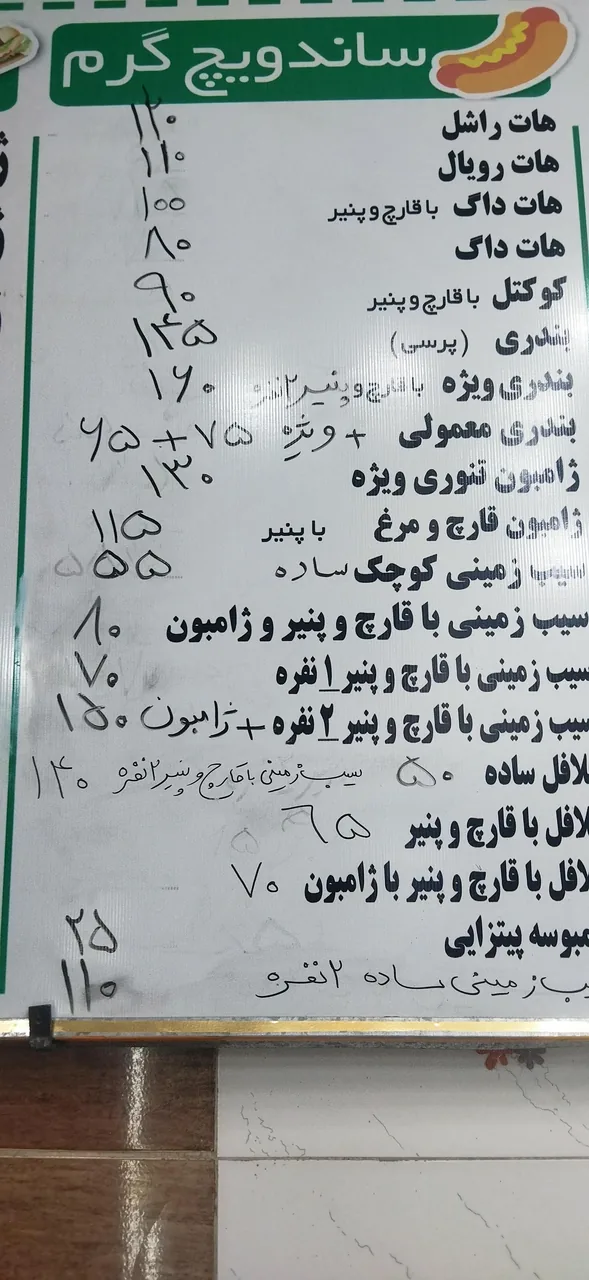 ساندویچ گرم
هات راشل ۱۲۰
هات رویال ۱۱۰
هات داگ با قارچ و پنیر ۱۰۰
هات داگ ۸۰
کوکتل با قارچ و پنیر ۹۰
بندری (پرسی) ۱۴۵
بندری ویژه با قارچ و پنیر ۲ نفره ۱۶۰
بندری معمولی + ویژه ۷۵ + ۶۵
ژامبون تنوری ویژه ۱۳۰
ژامبون قارچ و مرغ با پنیر ۱۱۵
سیب زمینی کوچک ساده ۵۵
سیب زمینی با قارچ و پنیر و ژامبون ۸۰
سیب زمینی با قارچ و پنیر ۱ نفره ۷۰
سیب زمینی با قارچ و پنیر ۲ نفره + ژامبون ۱۵۰
لافل ساده ۵۰ سیب زمینی با قارچ و پنیر ۲ نفره ۱۴۰
لافل با قارچ و پنیر ۶۵
لافل با قارچ و پنیر با ژامبون ۷۰
مبوسه پیتزایی ۲۵
یب زمینی ساده ۲ نفره ۱۱۰